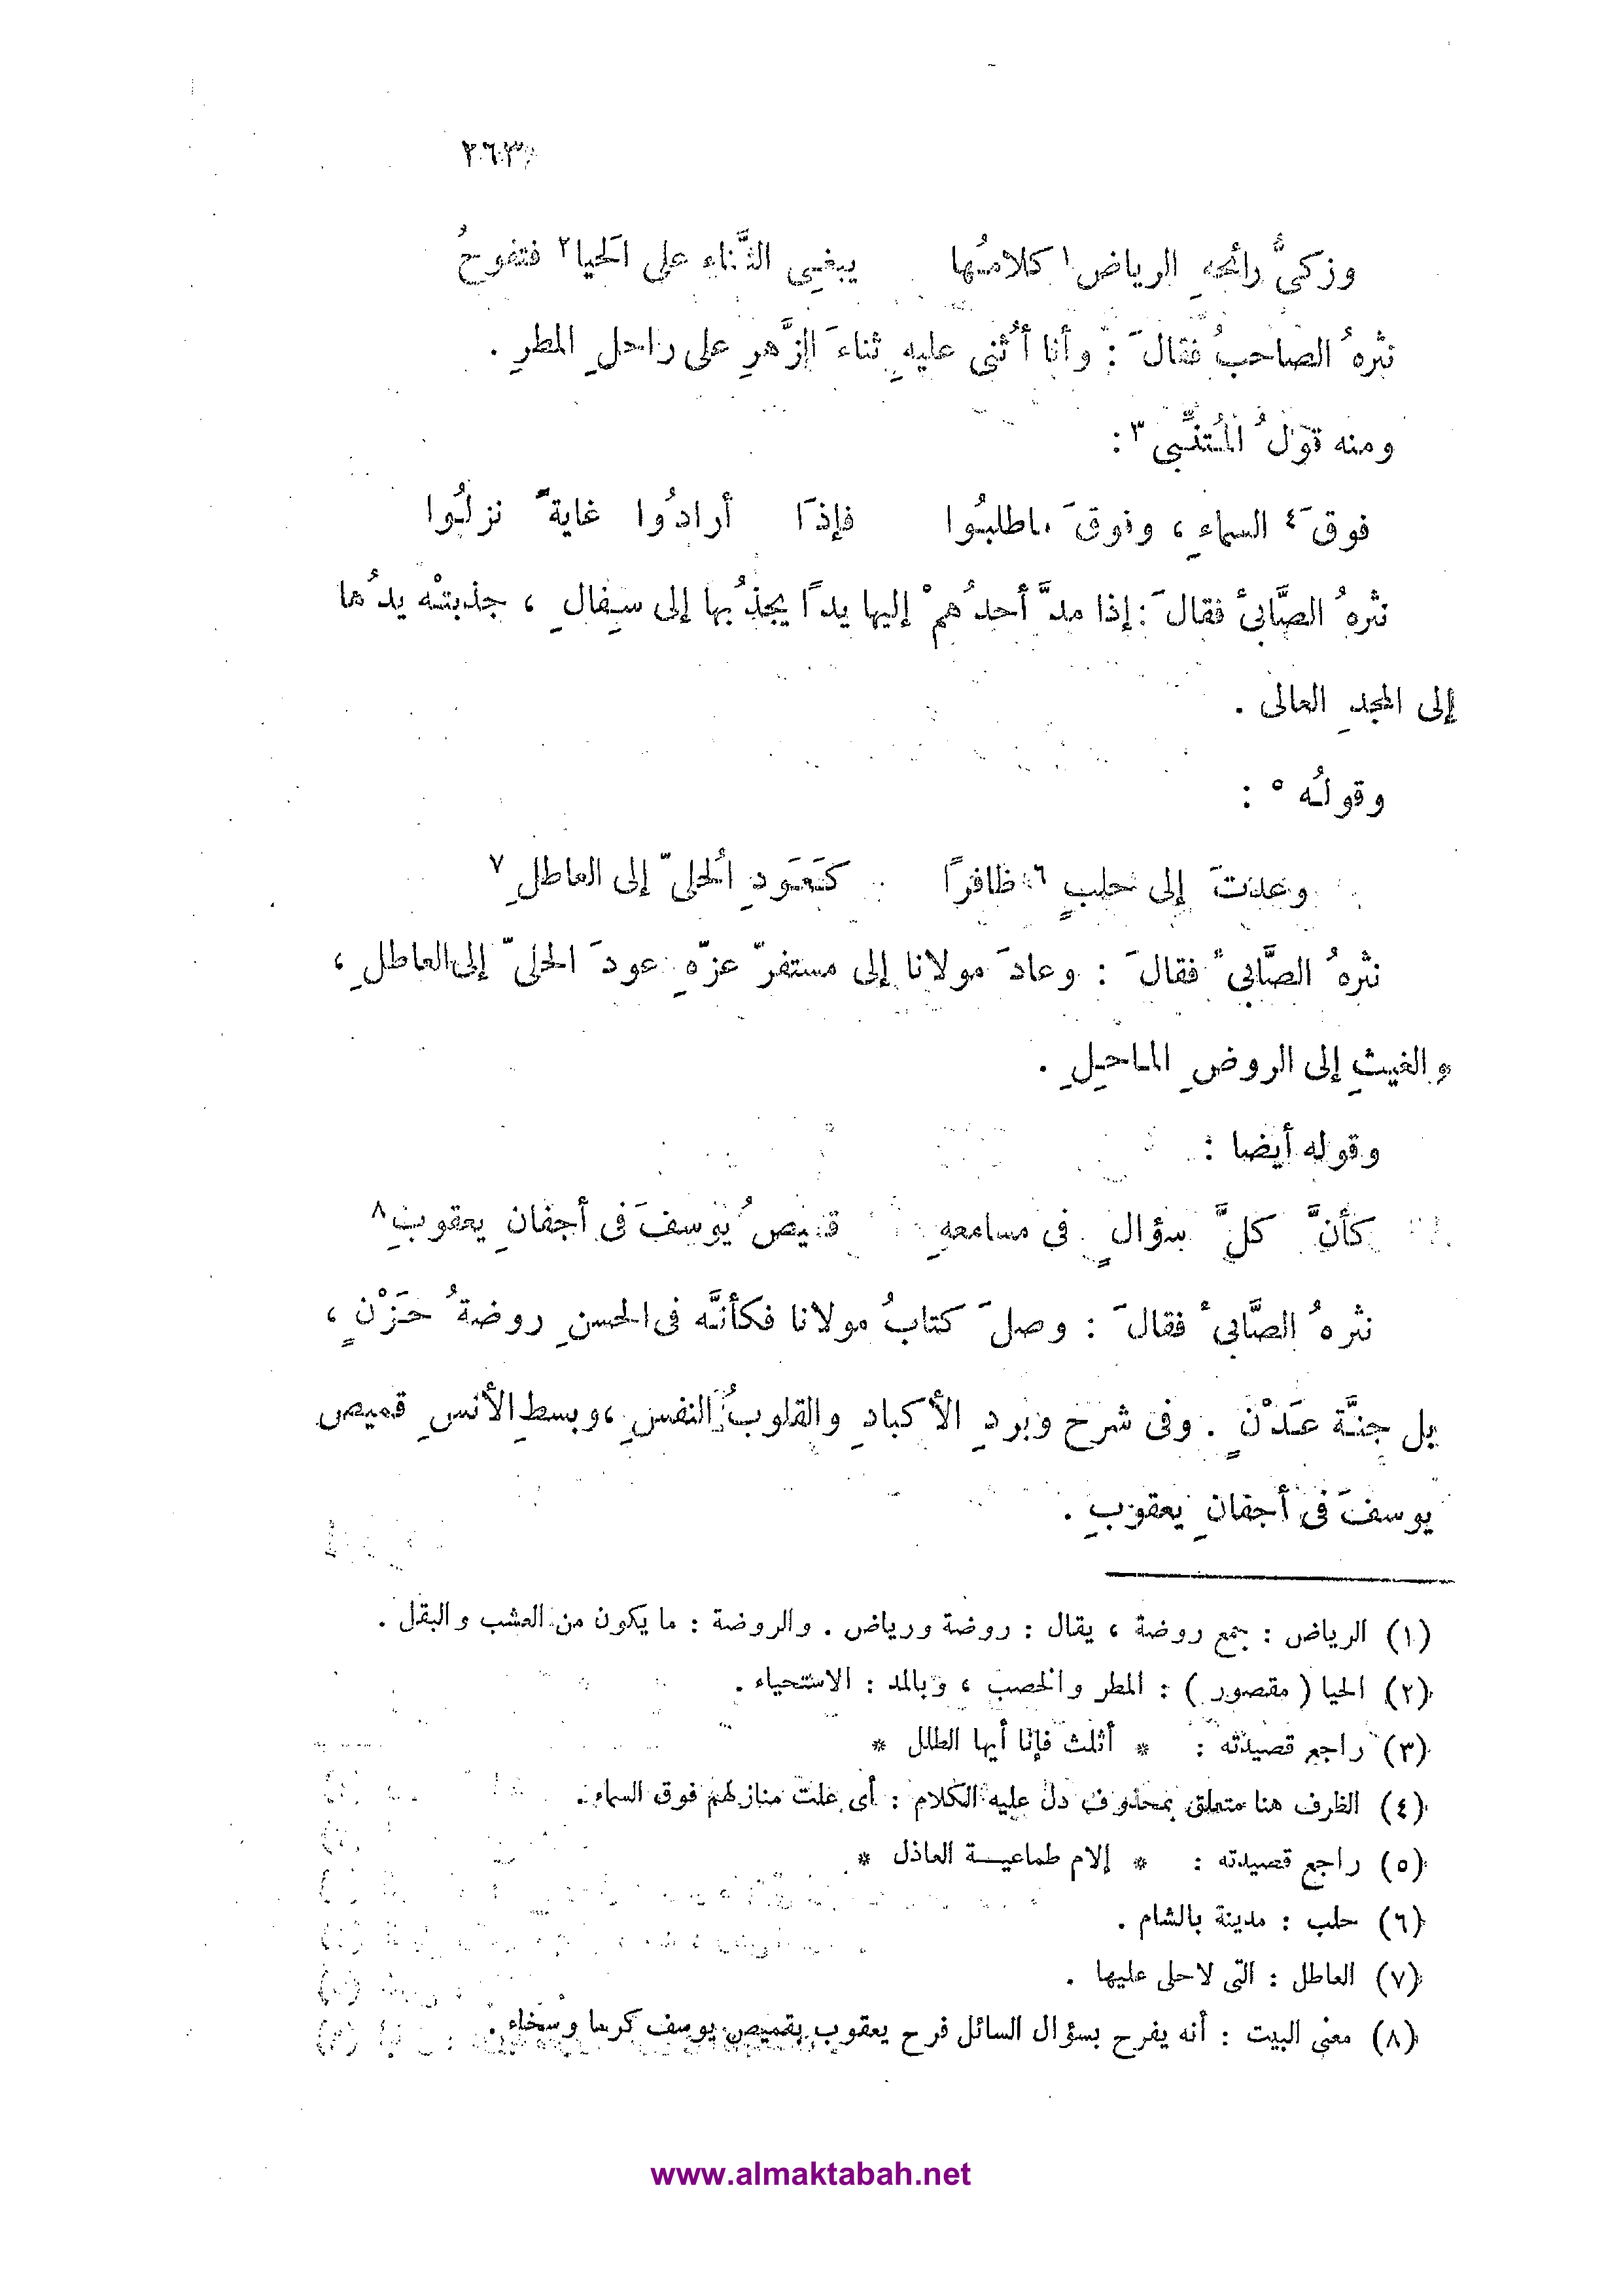 ٢٦٣
وزكىُّ رائحةِ الرياض١ كلامُها يبغى الثَّناء على الحَيا٢ فتفوحُ
نثرهُ الصاحبُ فقالَ : وأنا أُثنى عليهِ ثناءَ الزَّهرِ على راحلِ المطرِ .
ومنه قوْلُ المُتنبِّى٣ :
فوقَ٤ السماءِ ، وفوقَ ماطلبُوا فإذَا أرادُوا غايةً نزلُوا
نثرهُ الصَّابىُ فقالَ : إذا مدَّ أحدُهمْ إليها يدًا يجذُبها إلى سِفالِ ، جذبتْه يدُها
إلى المجدِ العالى .
وقولُه ٥ :
وعدتَ إلى حلبٍ٦ ظافرًا كَعَودِ الحُلىّ إلى العاطلِ٧
نثرهُ الصَّابىُ فقالَ : وعادَ مولانا إلى مستقرّ عزّهِ عودَ الحلىّ إلى العاطلِ ،
والغيثِ إلى الروضِ الماحِلِ .
وقوله أيضا :
كأنَّ كلَّ سؤالٍ فى مسامعهِ قميصُ يوسفَ فى أجفانِ يعقوبِ٨
نثرهُ الصَّابىُ فقالَ : وصلَ كتابُ مولانا فكأنَّه فى الحسنِ روضةُ حَزْنٍ ،
بل جنَّة عَدْنٍ . وفى شرح وبردِ الأكبادِ والقلوب النفسِ ، وبسطِ الأنسِ قميص
يوسفَ فى أجفانِ يعقوبِ .
(١) الرياض : جمع روضة ، يقال : روضة ورياض . والروضة : ما يكون من العشب والبقل .
(٢) الحيا ( مقصور ) : المطر والخصب ، وبالمد : الاستحياء .
(٣) راجع قصيدته : * أثلث فإنا أيها الطلل *
(٤) الظرف هنا متعلق بمحذوف دل عليه الكلام : أى علت منازلهم فوق السماء .
(٥) راجع قصيدته : * إلام طماعية العاذل *
(٦) حلب : مدينة بالشام .
(٧) العاطل : التى لا حلى عليها .
(٨) معنى البيت : أنه يفرح بسؤال السائل فرح يعقوب بقميص يوسف كرما وسخاء .
www.almaktabah.net